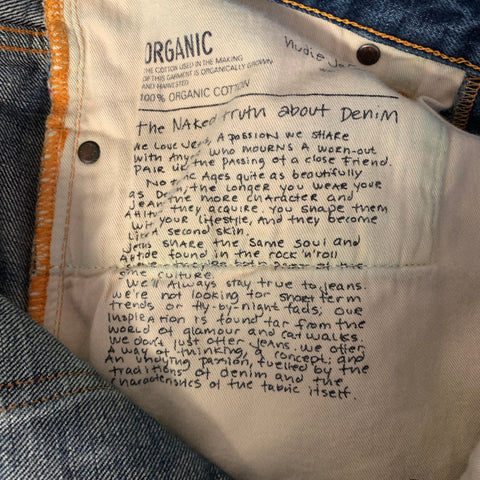 ORGANIC
Nudie Je
THE COTTON USED IN THE MAKING
OF THIS GARMENT IS ORGANICALLY GROWN
AND HARVESTED
100% ORGANIC COTTON
The Naked Truth about Denim
We Love Je, A Passion we share
with Any who mourns a worn-out
pair the passing of a close friend.
No Ages quite as beautifully
as De, the longer you wear your
jean the more character and
Attit they acquire. You shape them
wi your lifestyle, and they become
like second skin.
Jeans share the same soul and
found in the rock'n'roll
culture.
We'll Always stay true to jeans.
we're not looking for short term
trends or fly-by-night fads; our
Inspiration is found far from the
world of glamour and catwalks.
We don't just offer jeans. We offer
A way of thinking, a concept; and
An undying passion, fuelled by the
traditions of denim and the
characteristics of the fabric itself.